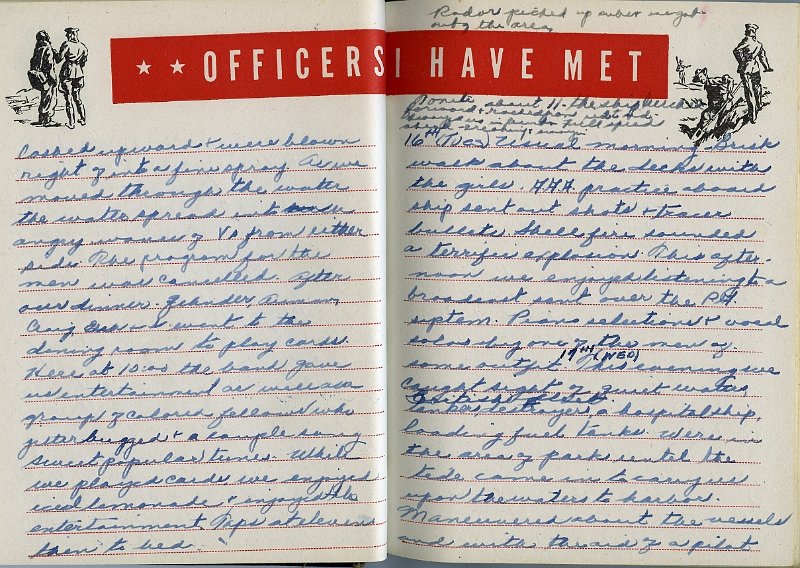 OFFICERS I HAVE MET
cashed upward & were blown
right off into a fine spray. As we
moved through the water
the water spread into
angry waves of V's from either
side. The program for the
men was cancelled. After
our dinner.
Craig, & I went to the
dining room to play cards.
Here at 10:00 the band gave
us entertainment as well as a
group of colored fellows who
jitterbugged & a couple sang
sweet popular tunes. While
we played cards we enjoyed
iced lemonade & enjoyed the
entertainment. Nps at eleven
then to bed.
Radar picked up
outg the area
about 11. the ship
forward &
16TH (Tues) Usual morning. Brisk
walk about the decks with
the girls. AAA practice aboard
ship sent out shots & tracer
bullets. Shellfire sounded
a terrific explosion. This after-
noon we enjoyed listening to a
broadcast sent over the PA
system. Piano selections & vocal
solos by one of the men of
some outfit. This evening we
17TH (WED)
caught sight of quiet waters,
tankers destroyer, a hospital ship,
loading fuel tanks. Were in
the area of parks until the
tide came in to carry us
upon the waters to harbor.
Maneuvered about the vessels
and with the aid of a pilot